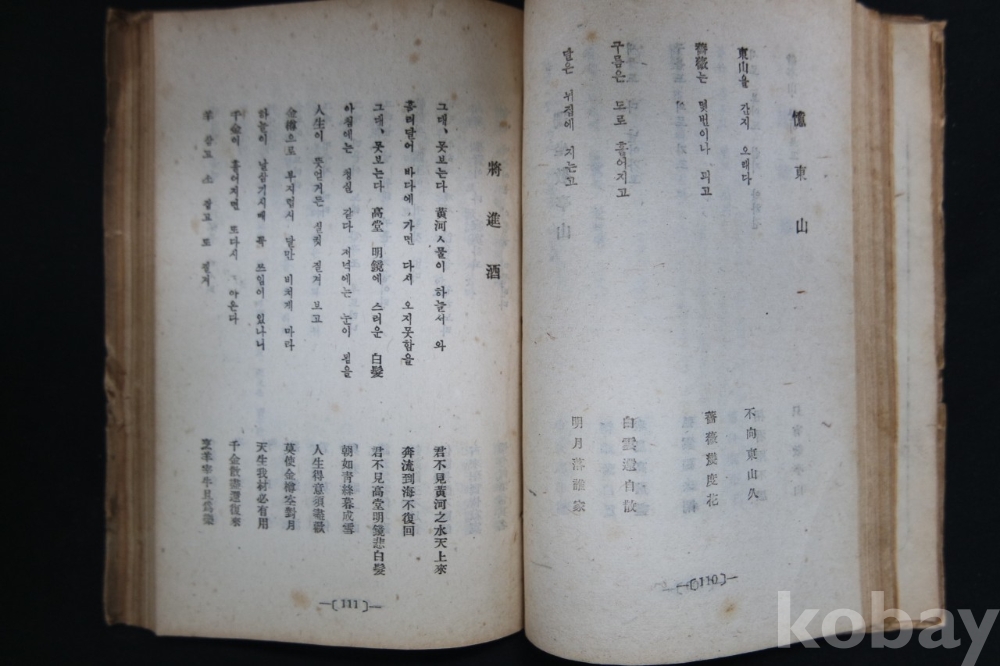 憶東山
東山을 간지 오래다
薔薇는 몇번이나 피고
구름은 모로 흩어지고
달은 뉘집에 지는고
不向東山久
薔薇幾度花
白雲還自散
明月落誰家
—〔110〕—
將進酒
그대、못보는다 黃河ㅅ물이 하늘서 와
흘러달어 바다에 가면 다시 오지못함을
그대、못보는다 高堂 明鏡에 스러운 白髮
아침에는 청실 같다 저녁에는 눈이 됨을
人生이 뜻얻거든 질펒 질겨 보고
金樽으로 부지럽시 달만 비치게 마라
하늘이 날삼기시매 꼭 쓰임이 있나니
千金이 흩어지면 또다시 아온다
羊 삼고 소 잡고 또 질겨
君不見黃河之水天上來
奔流到海不復回
君不見高堂明鏡悲白髮
朝如青絲暮成雪
人生得意須盡歡
莫使金樽空對月
天生我材必有用
千金散盡還復來
烹羊宰牛且爲樂
—〔111〕—
kobay